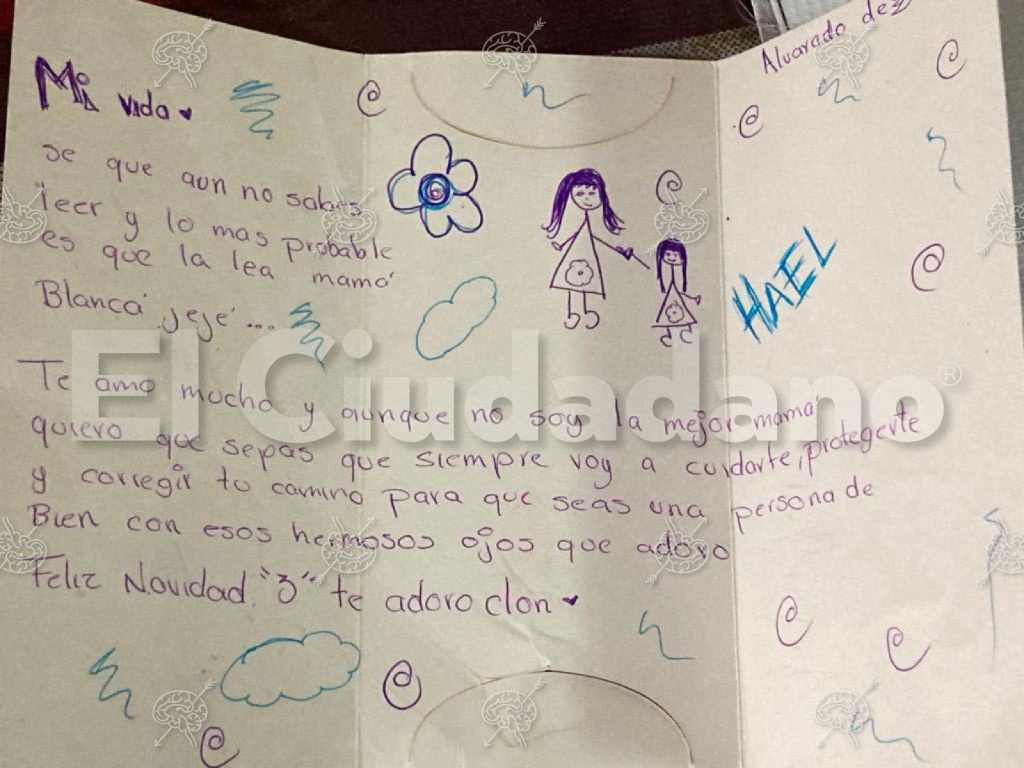 Alvarado dez
Mi vida
se que aun no sabes
leer y lo mas probable
es que la lea mamá
Blanca jeje...
HAEL
Te amo mucho y aunque no soy la mejor mamá
quiero que sepas que siempre voy a cuidarte, protegerte
y corregir tu camino para que seas una persona de
Bien con esos hermosos ojos que adoro
Feliz Navidad "3" te adoro clon
El Ciudadano®